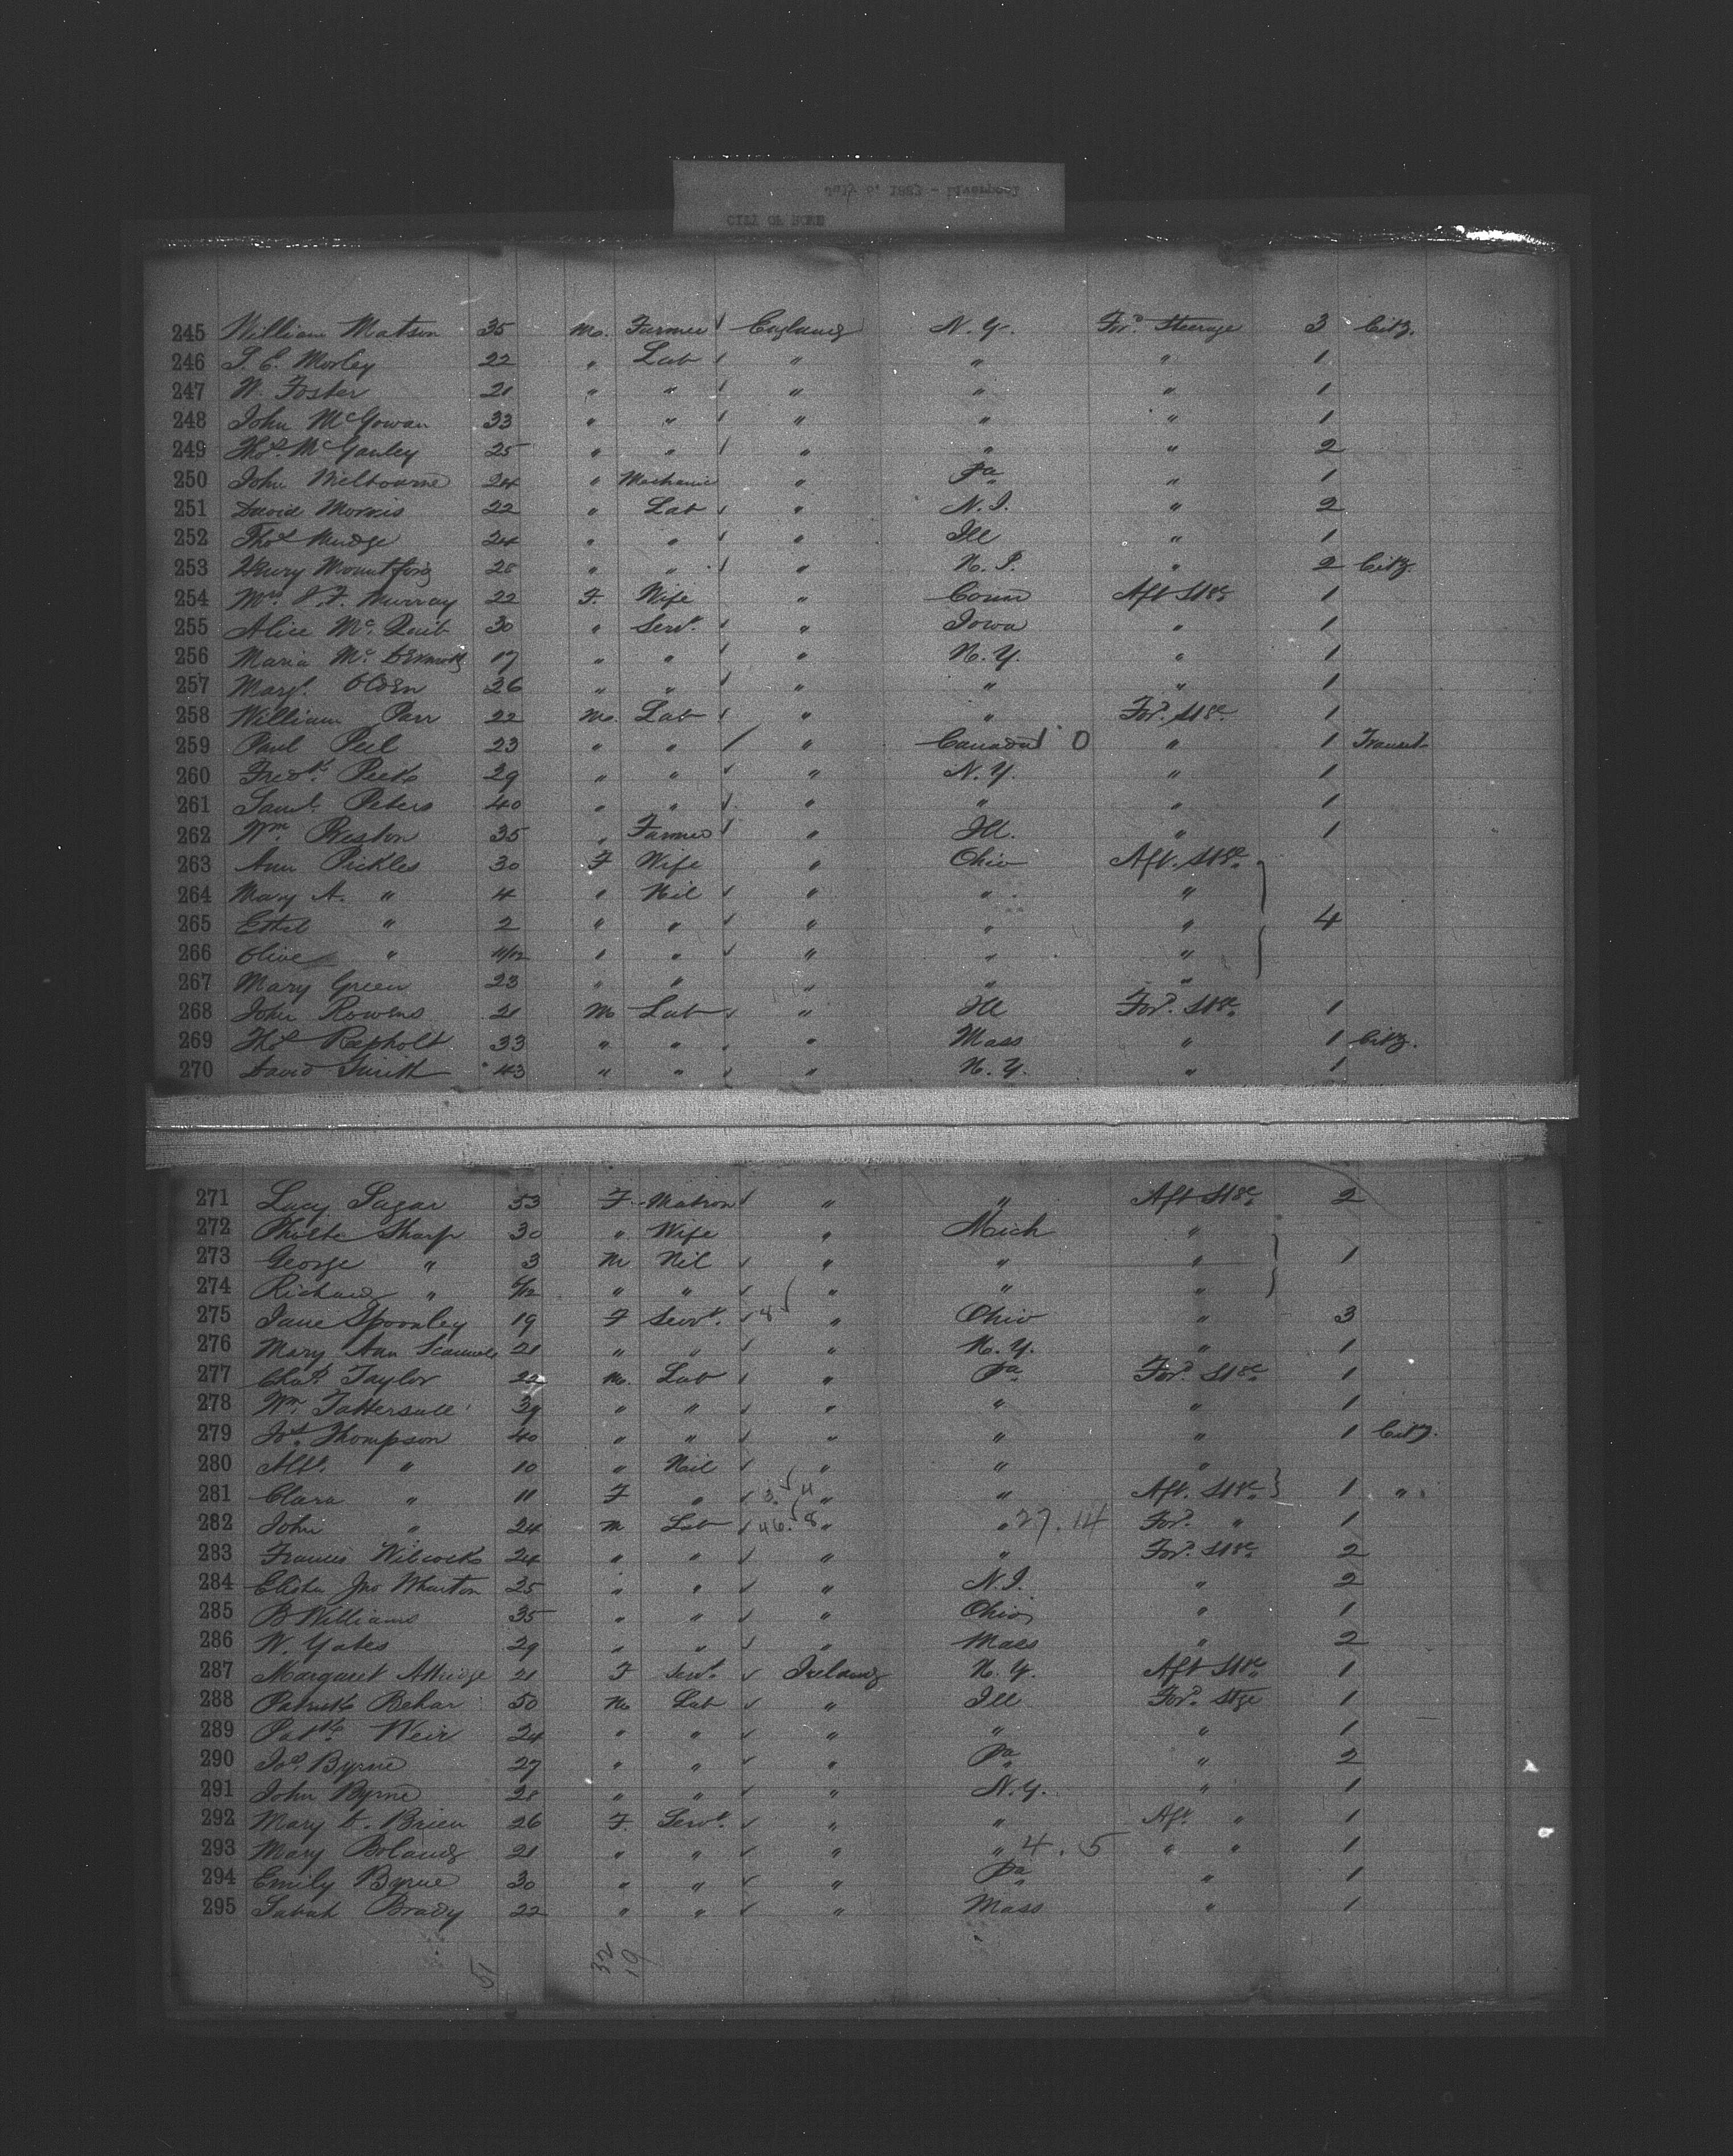 July 6, 1887 - Liverpool
CITY OF ROME
245 William Matson 35 M. Farmer ✓ England N.Y. For'd Steerage 3 Citz.
246 S. E. Morley 22 " Lab ✓ " " " 1
247 W. Foster 21 " " ✓ " " " 1
248 John McGowan 33 " " ✓ " " " 1
249 Thos McGanley 25 " " ✓ " " " 2
250 John Melbourne 24 " Mechanic " Pa " 1
251 David Morris 22 " Lab ✓ " N.J. " 2
252 Thos Mudge 24 " " ✓ " Ill " 1
253 Henry Mountford 28 " " ✓ " " 2 Citz.
254 Mrs Murray 22 F. Wife " Conn Aft Stge 1
255 Alice Mc 30 " Servt. ✓ " Iowa " 1
256 Maria Mc Dermott 17 " " ✓ " N.Y. " 1
257 Margt. Olden 26 " " ✓ " " " 1
258 William Parr 22 M. Lab ✓ " " For'd. Stge 1
259 Paul Peel 23 " " / " Canada 0 " 1 Transit
260 Fredk. Peek 29 " " ✓ " N.Y. " 1
261 Saml. Peters 40 " " ✓ " " " 1
262 Wm Preston 35 " Farmer ✓ " Ill. " 1
263 Ann Pickles 30 F Wife " Ohio Aft. Stge
264 Mary A. " 4 " Nil ✓ " " "
265 Ethel " 2 " " ✓ " " " 4
266 Olive " 11/12 " " ✓ " " "
267 Mary Green 23 " " " " "
268 John Rowens 21 M Lab ✓ " Ill For'd. Stge 1
269 Thos Repholt 33 " " " Mass " 1 Citz.
270 David Smith 43 " " ✓ " N.Y. " 1
271 Lucy Sagar 53 F. Matron ✓ " " Aft Stge 2
272 Sharp 30 " Wife " Mich "
273 George " 3 M Nil ✓ " " " 1
274 Richard " /12 " " ✓ " " "
275 Jane Spoonley 19 F Servt. ✓ 8 " Ohio " 3
276 Mary Ann 21 " " ✓ " N.Y. " 1
277 Chas. Taylor 22 M. Lab ✓ " Pa For'd. Stge 1
278 Wm. Tattersall 39 " " ✓ " " " 1
279 Jos. Thompson 40 " " ✓ " " " 1 Citz.
280 Albt. " 10 " Nil ✓ " " "
281 Clara " 11 F " ✓ 3. 4 " " Aft. Stge 1 "
282 John " 24 M Lab ✓ 46. 8 " " 27.14 For'd. " 1
283 Francis Wilcocks 24 " " ✓ " " For'd. Stge 2
284 Elisha Jno Wharton 25 " " ✓ " N.J. " 2
285 B Williams 35 " " ✓ " Ohio " 1
286 W. Yates 29 " " ✓ " Mass " 2
287 Margaret Attridge 21 F Servt. ✓ Ireland N.Y. Aft Stge 1
288 Patrick Behar 50 M Lab ✓ " Ill For'd. Stge 1
289 Patk. Weir 24 " " ✓ " " " 1
290 Jos. Byrne 27 " " ✓ " Pa " 2
291 John Byrne 28 " " ✓ " N.Y. " 1
292 Mary Brien 26 F. Servt. ✓ " " Aft. " 1
293 Mary Boland 21 " " ✓ " " 4.5 " " 1
294 Emily Byrne 30 " " ✓ " Pa " 1
295 Sarah Brady 22 " " ✓ " Mass " 1
51 32 19